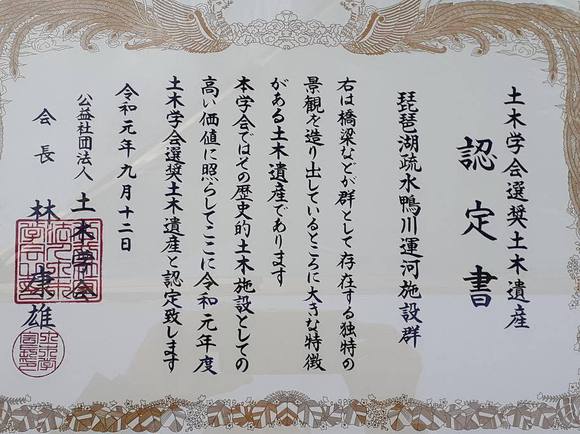 土木学会選奨土木遺産
認定書
琵琶湖疏水鴨川運河施設群
右は橋梁などが群として存在する独特の
景観を造り出しているところに大きな特徴
がある土木遺産であります
本学会ではその歴史的土木施設としての
高い価値に照らしてここに令和元年度
土木学会選奨土木遺産と認定致します
令和元年九月十二日
公益社団法人 土木学会
会長 林 康雄